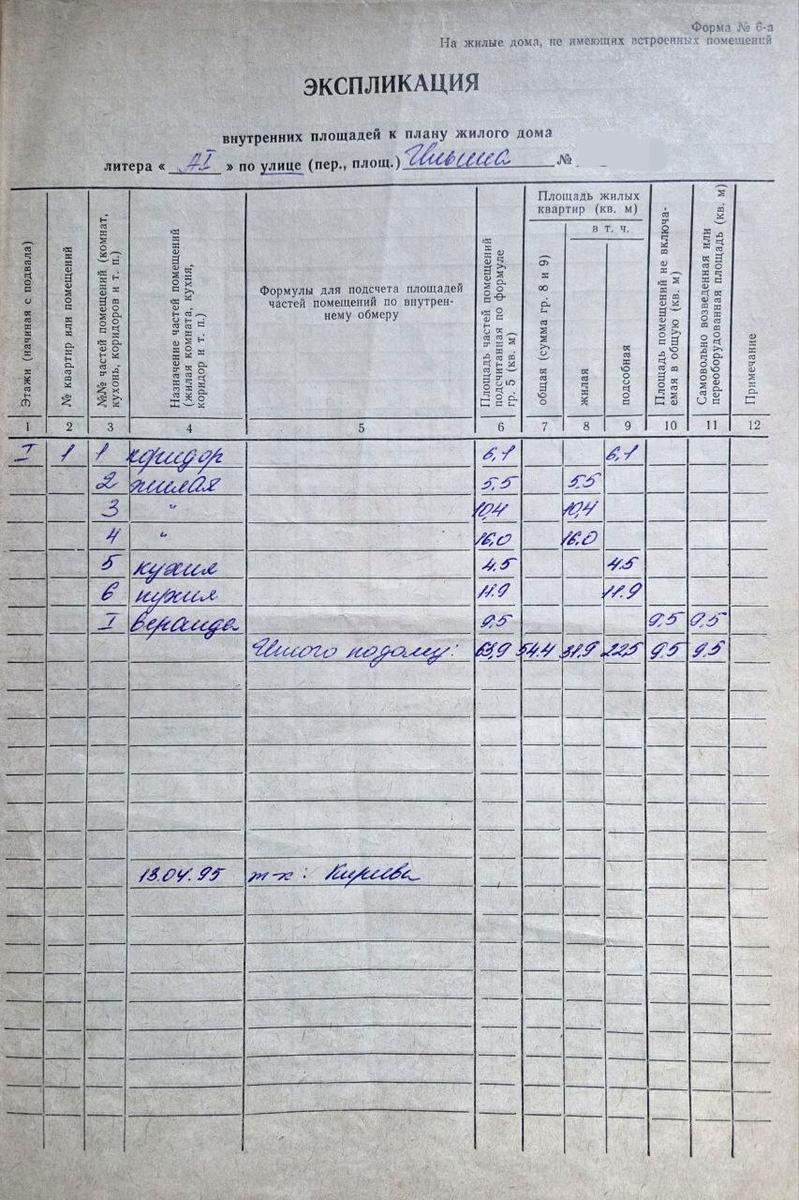 Форма № 6-а
На жилые дома, не имеющих встроенных помещений
ЭКСПЛИКАЦИЯ
внутренних площадей к плану жилого дома
литера « АI » по улице (пер., площ.) Ильича №
Этажи (начиная с подвала)
№ квартир или помещений
№№ частей помещений (комнат, кухонь, коридоров и т. п.)
Назначение частей помещений (жилая комната, кухня, коридор и т. п.)
Формулы для подсчета площадей
частей помещений по внутрен-
нему обмеру
Площадь частей помещений подсчитанная по формуле гр. 5 (кв. м)
Площадь жилых
квартир (кв. м)
общая (сумма гр. 8 и 9)
в т. ч.
жилая
подсобная
Площадь помещений не включа-емая в общую (кв. м)
Самовольно возведенная или переоборудованная площадь (кв. м)
Примечание
1 2 3 4 5 6 7 8 9 10 11 12
I 1 1 коридор 6,1 6,1
2 жилая 5,5 5,5
3 " 10,4 10,4
4 " 16,0 16,0
5 кухня 4.5 4.5
6 кухня 11.9 11.9
I веранда 9,5 9,5 9,5
Итого по дому: 63,9 54.4 31.9 22,5 9,5 9,5
13.04.95 т-к: Киреева